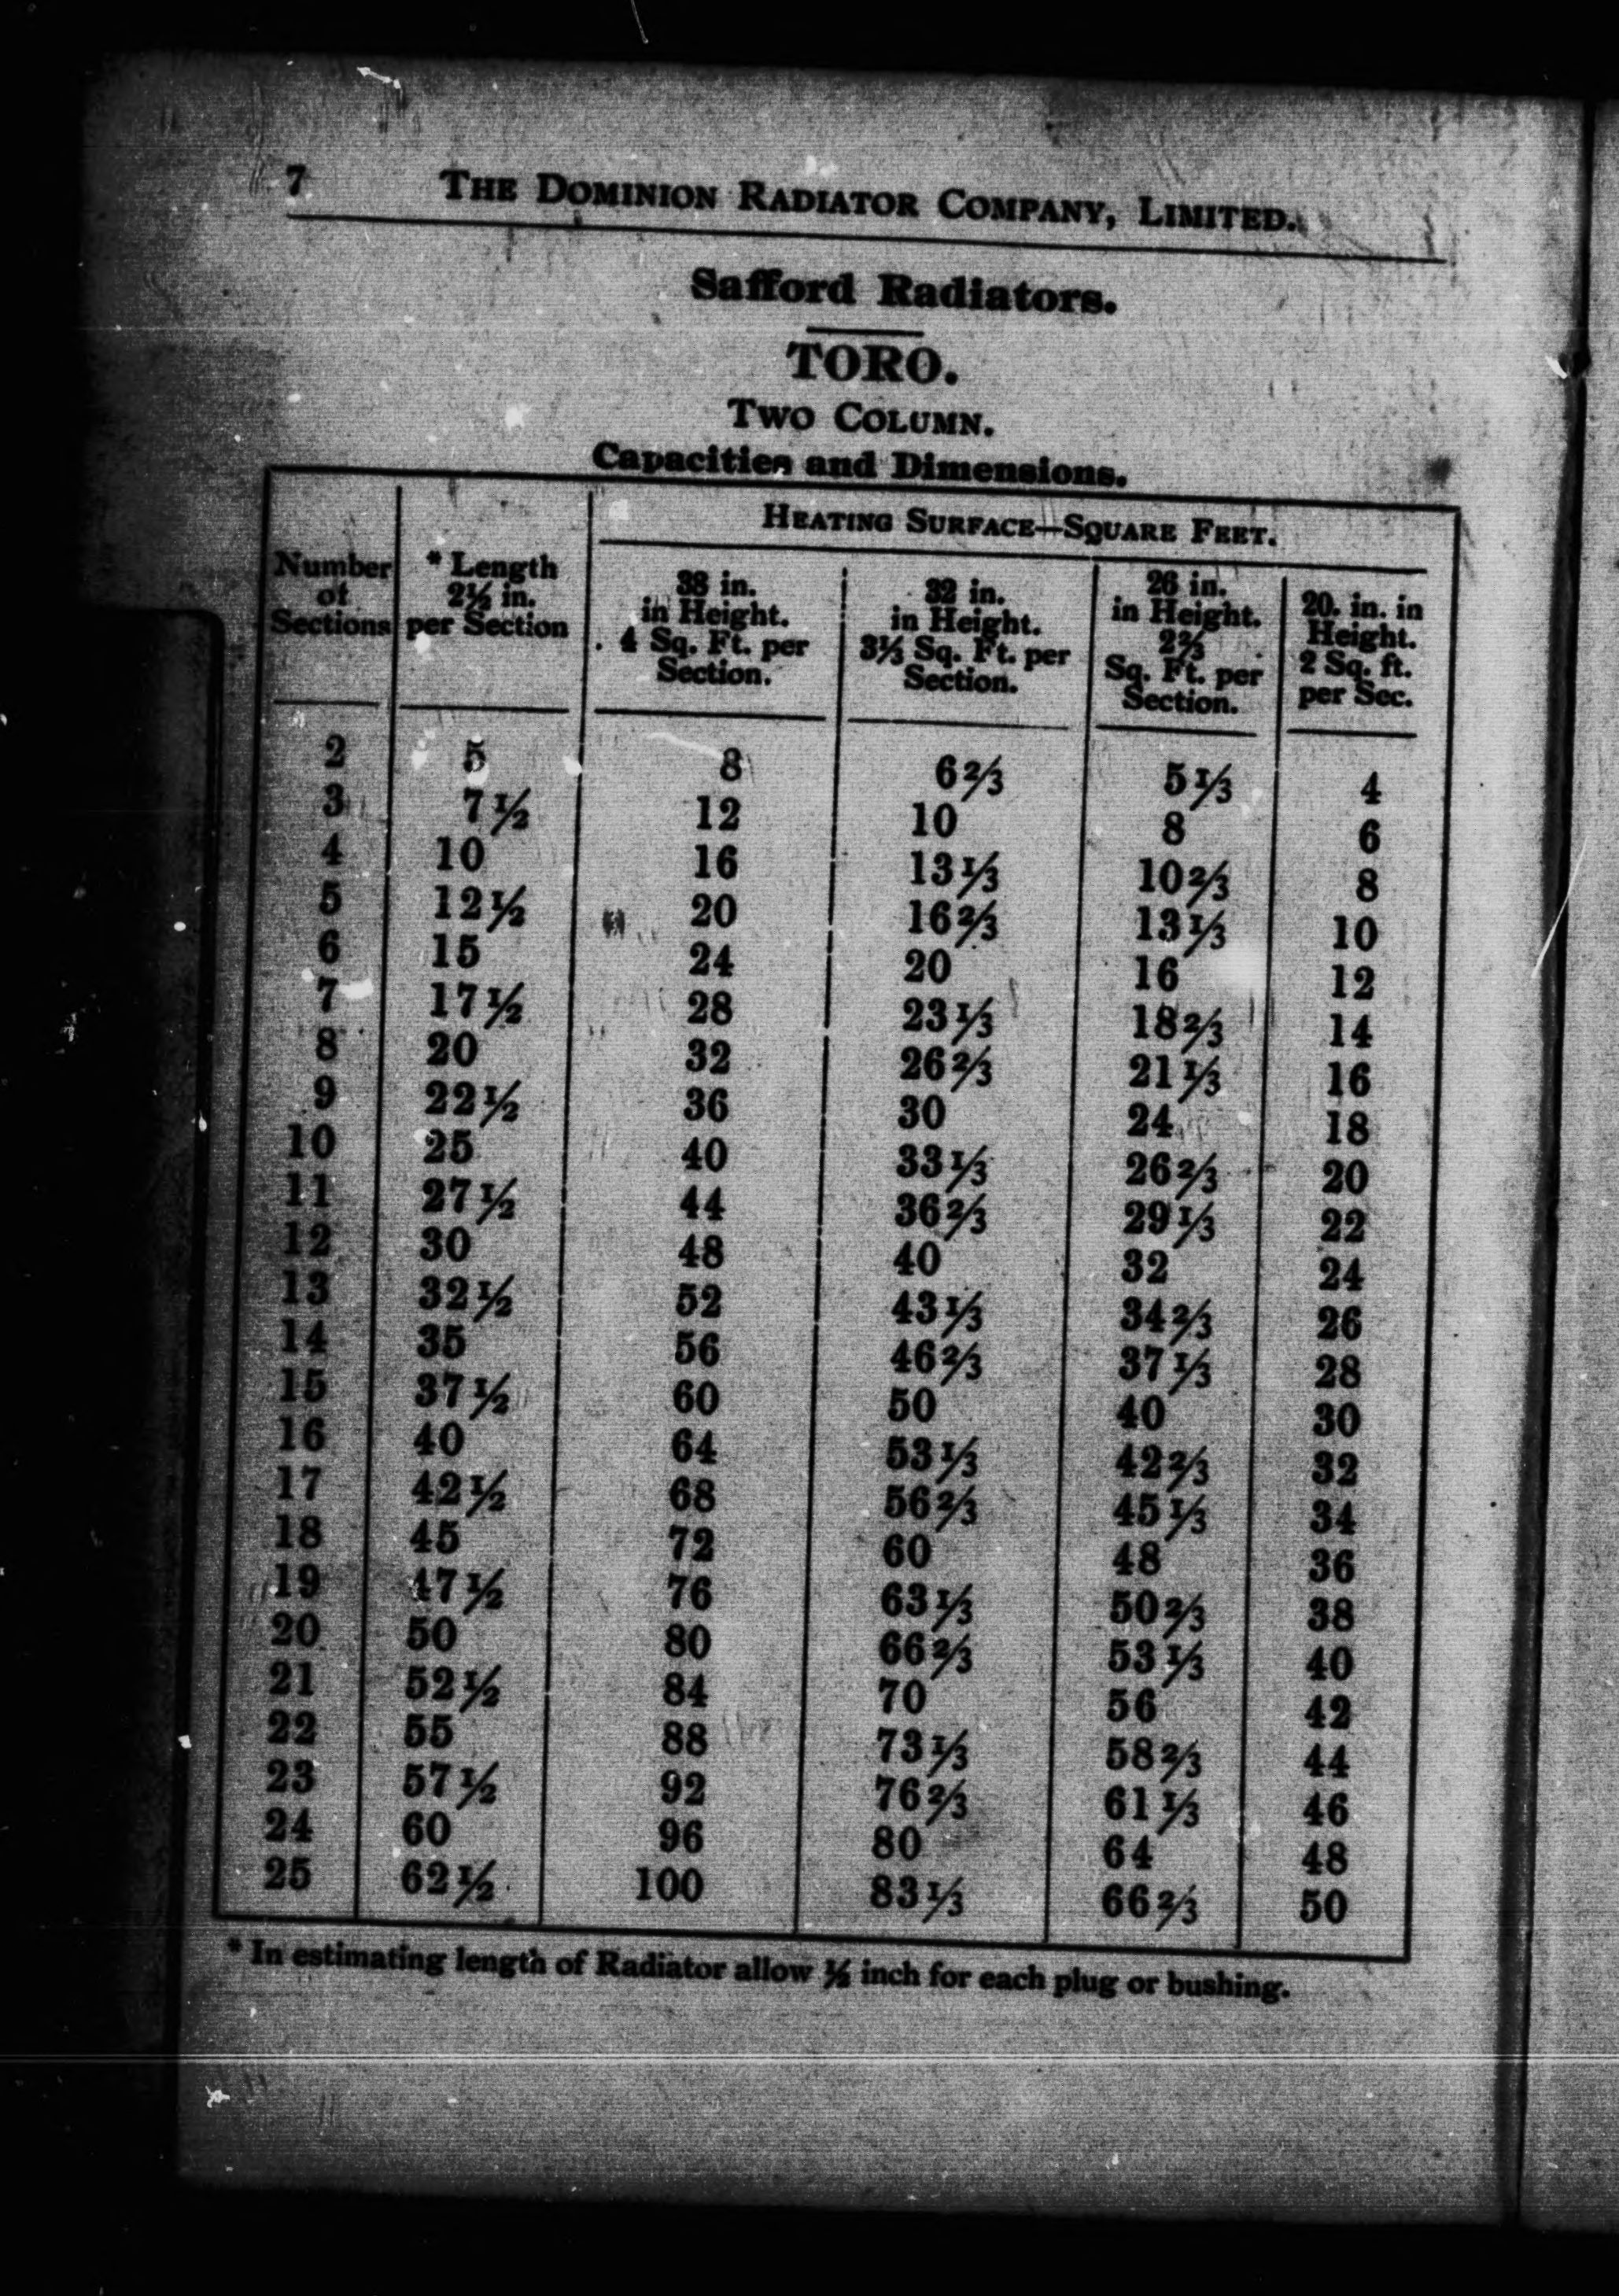 7 THE DOMINION RADIATOR COMPANY, LIMITED.
Safford Radiators.
TORO.
TWO COLUMN.
Capacities and Dimensions.
HEATING SURFACE—SQUARE FEET.
Number of Sections
* Length 2½ in. per Section
38 in. in Height. 4 Sq. Ft. per Section.
32 in. in Height. 3⅓ Sq. Ft. per Section.
26 in. in Height. 2⅔ Sq. Ft. per Section.
20. in. in Height. 2 Sq. ft. per Sec.
2 5 8 6⅔ 5⅓ 4
3 7½ 12 10 8 6
4 10 16 13⅓ 10⅔ 8
5 12½ 20 16⅔ 13⅓ 10
6 15 24 20 16 12
7 17½ 28 23⅓ 18⅔ 14
8 20 32 26⅔ 21⅓ 16
9 22½ 36 30 24 18
10 25 40 33⅓ 26⅔ 20
11 27½ 44 36⅔ 29⅓ 22
12 30 48 40 32 24
13 32½ 52 43⅓ 34⅔ 26
14 35 56 46⅔ 37⅓ 28
15 37½ 60 50 40 30
16 40 64 53⅓ 42⅔ 32
17 42½ 68 56⅔ 45⅓ 34
18 45 72 60 48 36
19 47½ 76 63⅓ 50⅔ 38
20 50 80 66⅔ 53⅓ 40
21 52½ 84 70 56 42
22 55 88 73⅓ 58⅔ 44
23 57½ 92 76⅔ 61⅓ 46
24 60 96 80 64 48
25 62½ 100 83⅓ 66⅔ 50
* In estimating length of Radiator allow ½ inch for each plug or bushing.